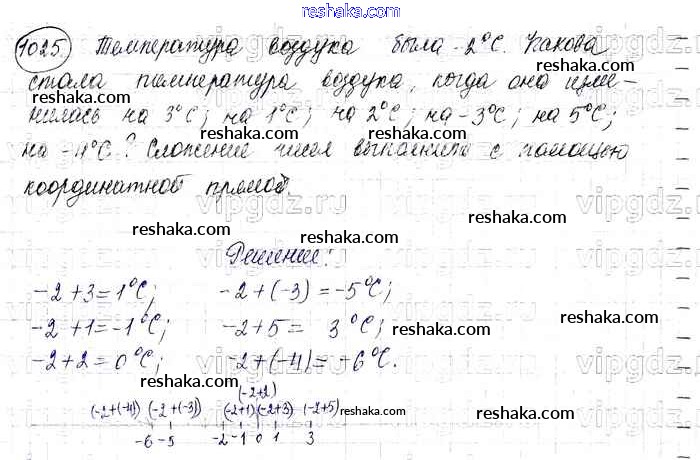 reshaka.com
1025 Температура воздуха была -2°C. Какова
стала температура воздуха, когда она изме-
reshaka.com
нилась на 3°C; на 1°C; на 2°C; на -3°C; на 5°C;
на -4°C? Сложение чисел выполните с помощью
reshaka.com
координатной прямой.
vipgdz.ru
reshaka.com
Решение:
reshaka.com
-2+3=1°C; -2+(-3)=-5°C;
-2+1=-1°C; -2+5= 3°C;
reshaka.com
-2+2=0°C; -2+(-4)=-6°C.
reshaka.com
(-2+2)
(-2+(-4)) (-2+(-3)) (-2+1) (-2+3) (-2+5) reshaka.com
-6 -5 -2 -1 0 1 3
reshaka.com